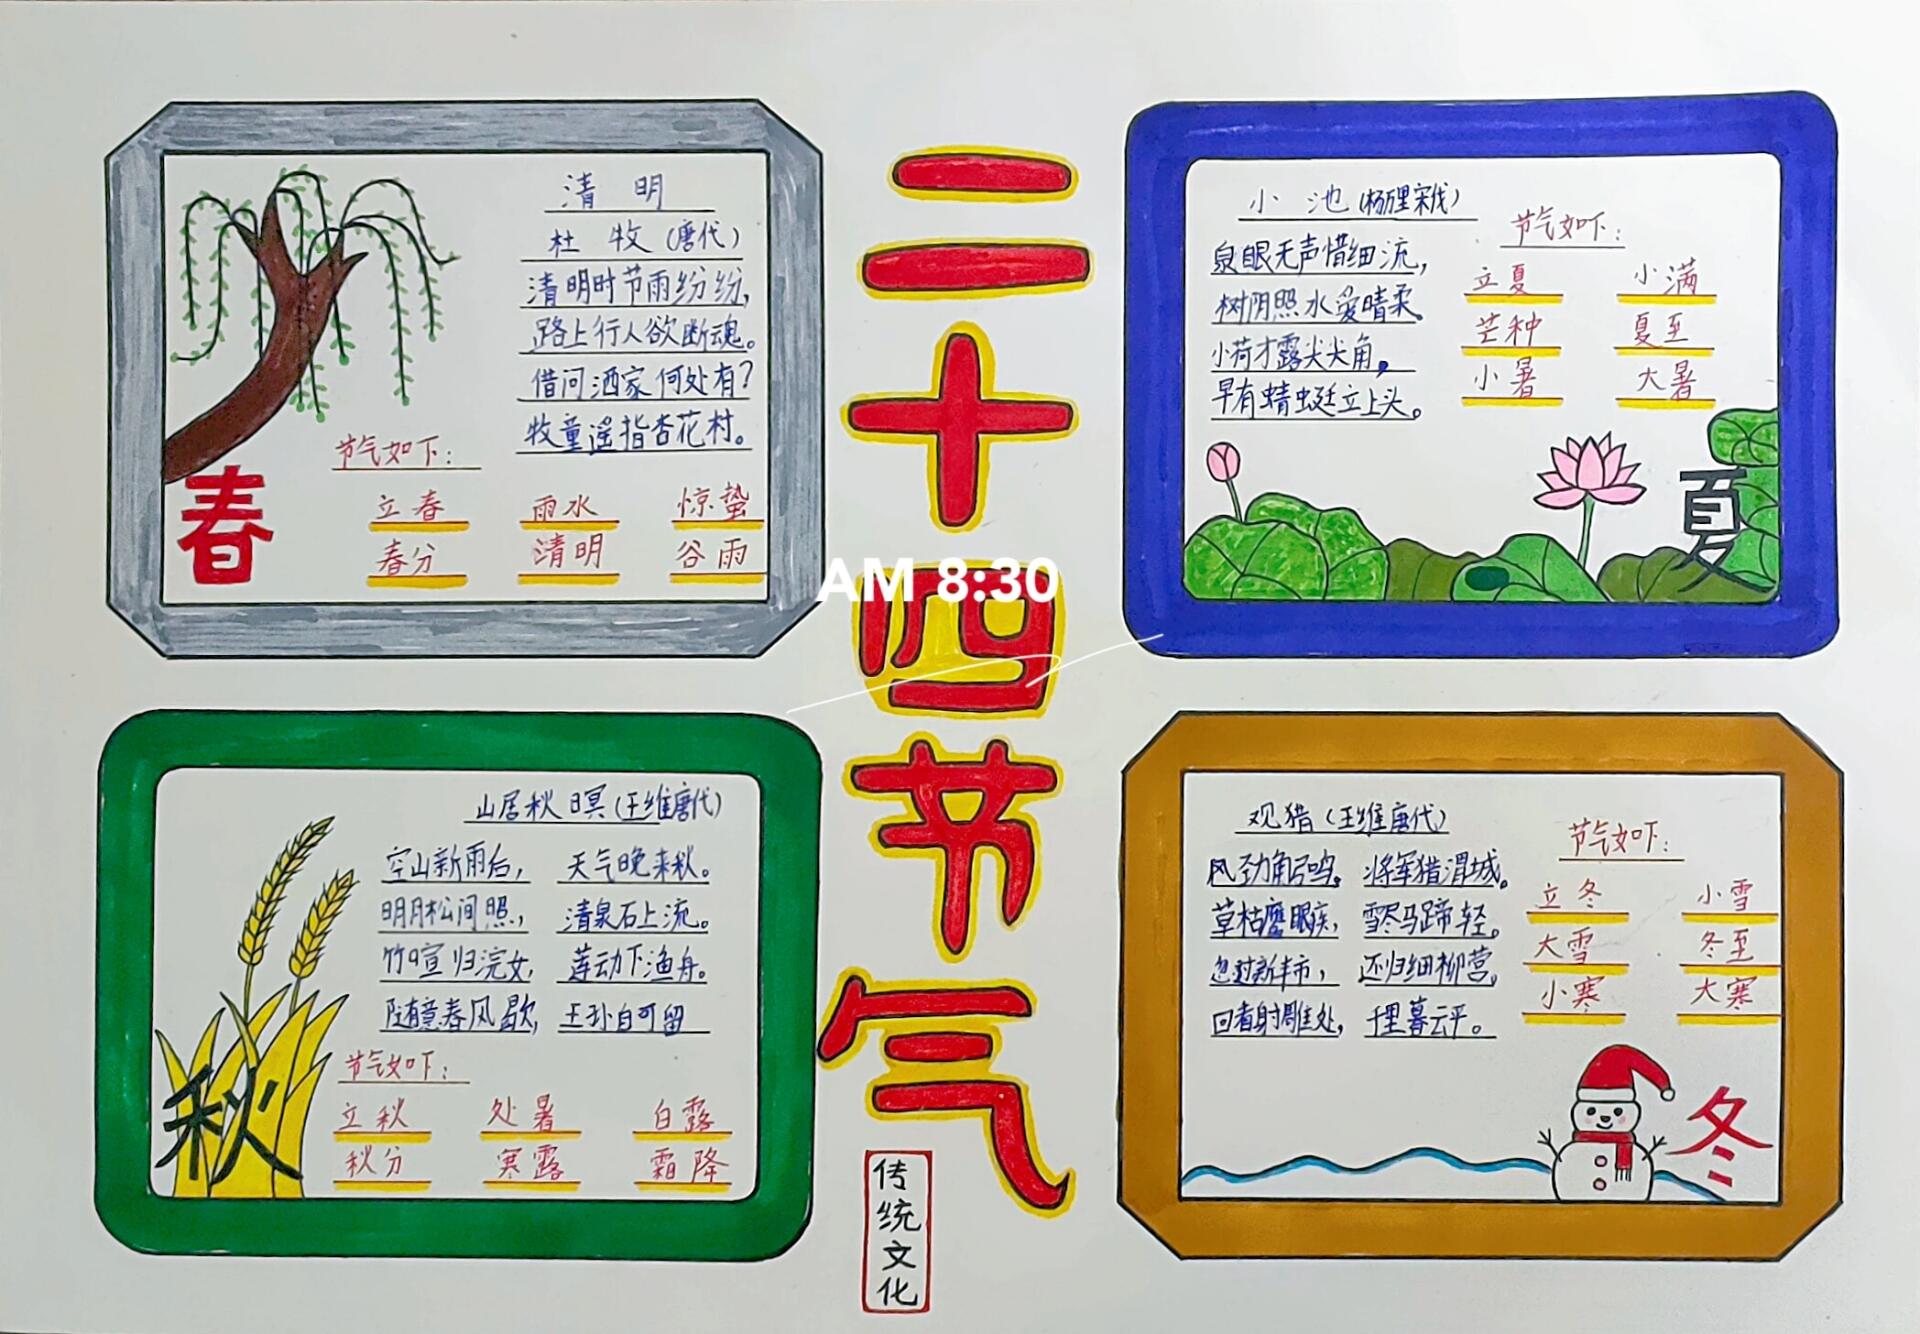 二十四节气
传统文化
AM 8:30
清 明
杜 牧（唐代）
清明时节雨纷纷，
路上行人欲断魂。
借问酒家何处有？
牧童遥指杏花村。
节气如下：
立春 雨水 惊蛰
春分 清明 谷雨
春
小 池（杨万里宋代）
泉眼无声惜细流，
树阴照水爱晴柔。
小荷才露尖尖角，
早有蜻蜓立上头。
节气如下：
立夏 小满
芒种 夏至
小暑 大暑
夏
山居秋暝（王维唐代）
空山新雨后， 天气晚来秋。
明月松间照， 清泉石上流。
竹喧归浣女， 莲动下渔舟。
随意春风歇， 王孙自可留
节气如下：
立秋 处暑 白露
秋分 寒露 霜降
秋
观猎（王维唐代）
风劲角弓鸣。 将军猎渭城。
草枯鹰眼疾， 雪尽马蹄轻。
忽过新丰市， 还归细柳营。
回看射雕处， 千里暮云平。
节气如下：
立冬 小雪
大雪 冬至
小寒 大寒
冬